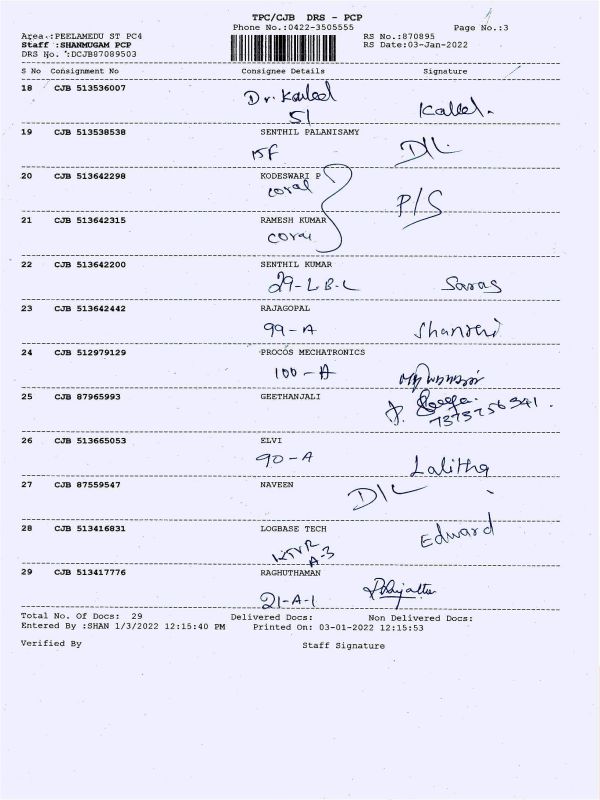 TPC/CJB DRS - PCP
Phone No.:0422-3505555 Page No.:3
Area.:PEELAMEDU ST PC4 RS No.:870895
Staff :SHANMUGAM PCP RS Date:03-Jan-2022
DRS No. :DCJB87089503
S No Consignment No Consignee Details Signature
18 CJB 513536007 Dr. Kaleel
51 Kaleel.
19 CJB 513538538 SENTHIL PALANISAMY
D/L
20 CJB 513642298 KODESWARI P
coral P/S
21 CJB 513642315 RAMESH KUMAR
coral
22 CJB 513642200 SENTHIL KUMAR
29-L.B-L Saras
23 CJB 513642442 RAJAGOPAL
99-A Shanthi
24 CJB 512979129 PROCOS MECHATRONICS
100-A
25 CJB 87965993 GEETHANJALI
26 CJB 513665053 ELVI
90-A Lalitha
27 CJB 87559547 NAVEEN
D/L
28 CJB 513416831 LOGBASE TECH
A-3 Edward
29 CJB 513417776 RAGHUTHAMAN
21-A-1
Total No. Of Docs: 29 Delivered Docs: Non Delivered Docs:
Entered By :SHAN 1/3/2022 12:15:40 PM Printed On: 03-01-2022 12:15:53
Verified By Staff Signature